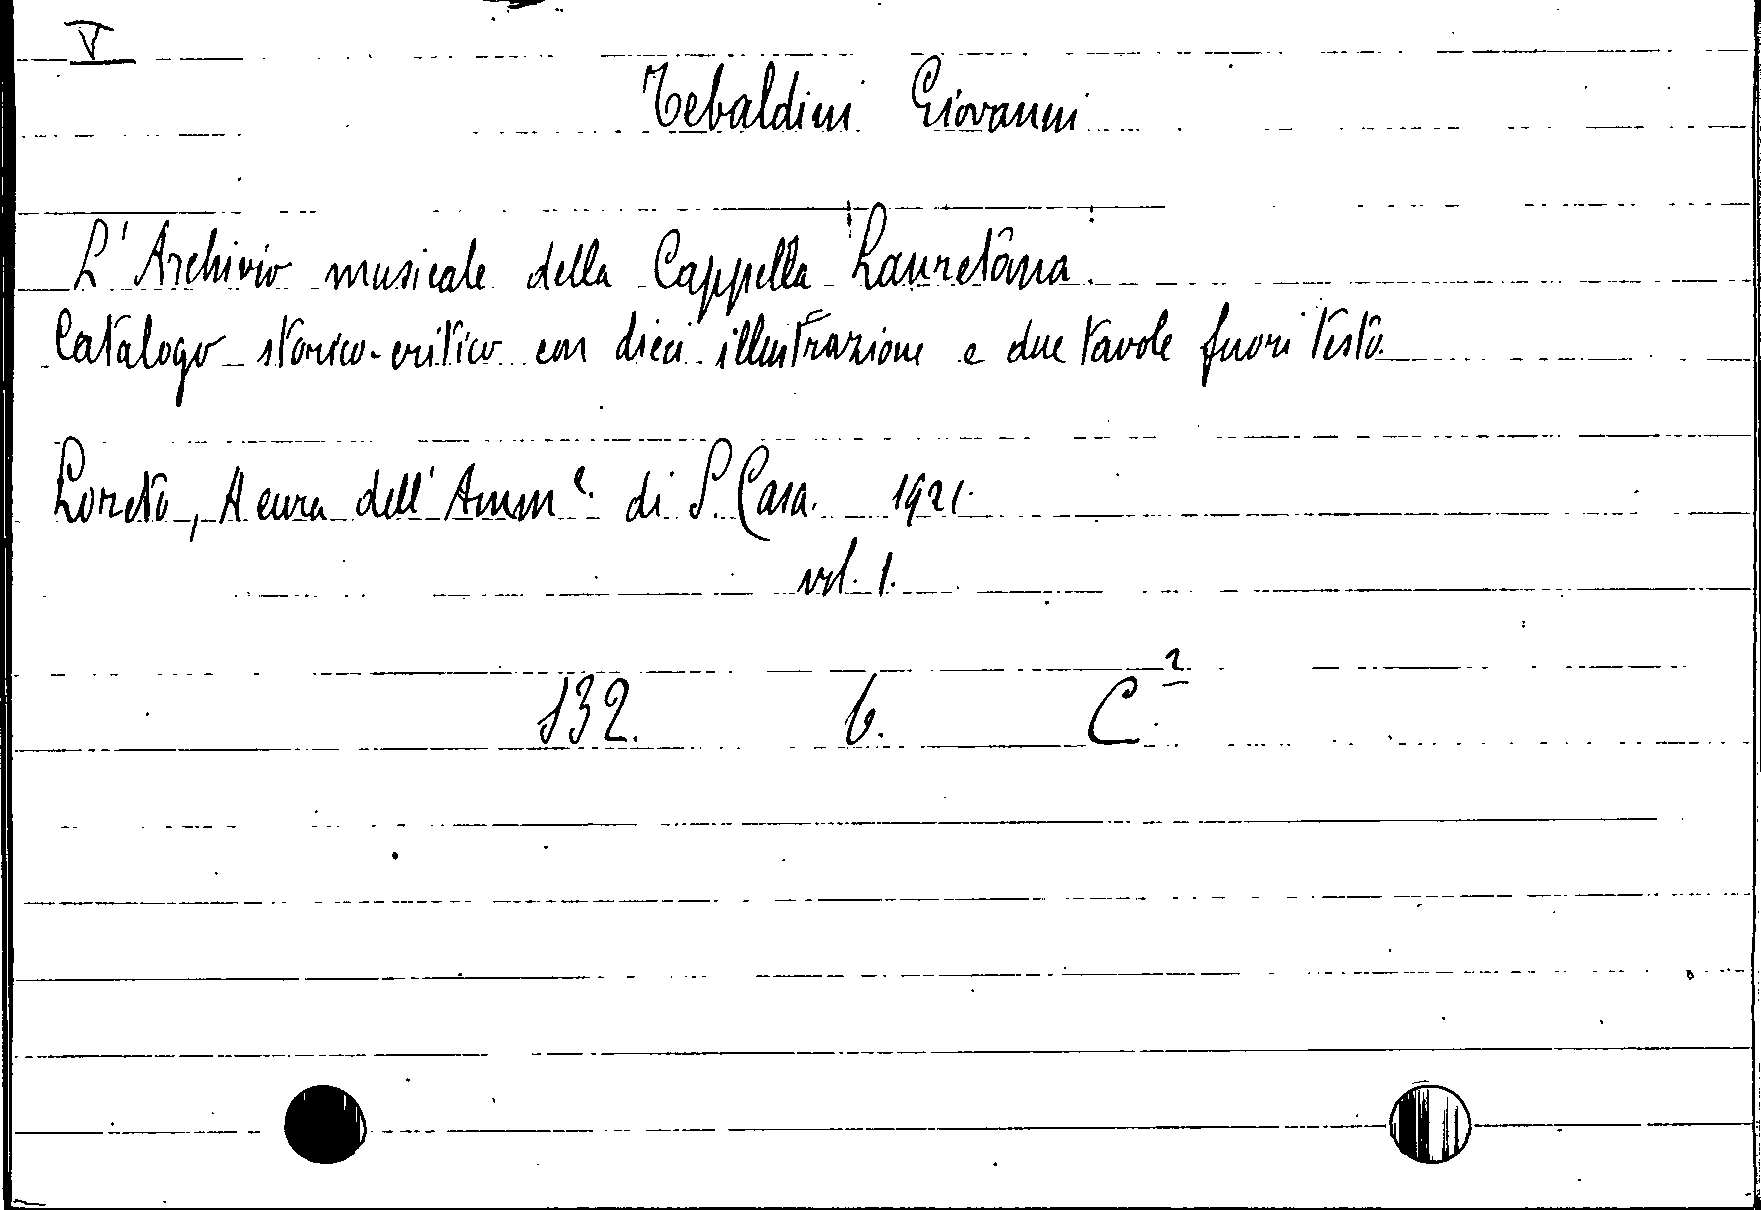 V
Tebaldini Giovanni
L'Archivio musicale della Cappella Lauretana.
Catalogo storico-critico con dieci illustrazione e due tavole fuori testo.
Loreto, A cura dell'Amm e. di S. Casa. 1921.
vol. 1.
132. 6. C.2